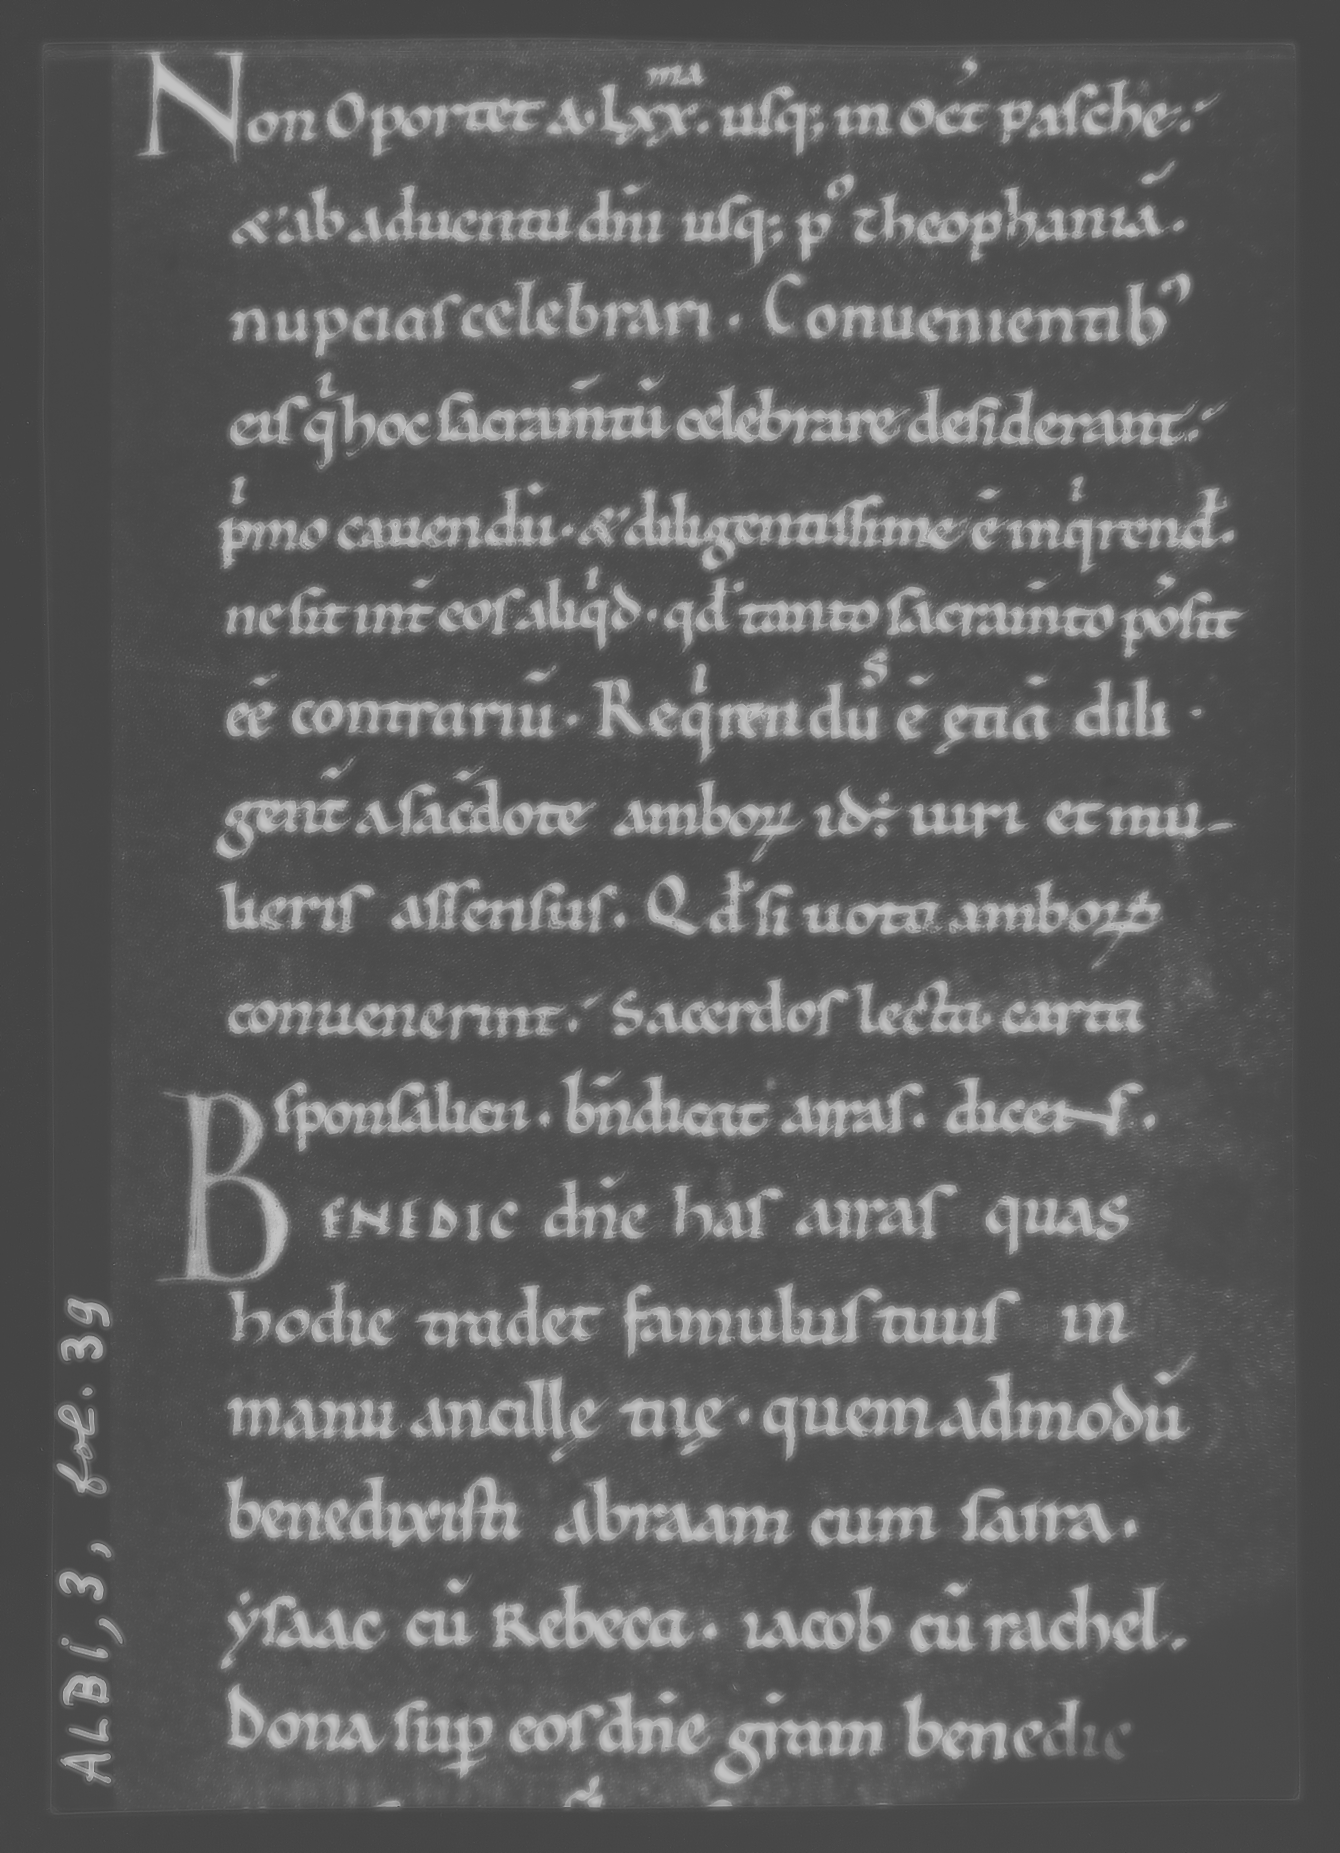 Non Oportet A·Lxx.ᵐᵃ uſq; in oct̉ paſche.
& ab aduentu dn̄i uſq; pꝰ theophaniā.
nupciaſ celebrari. Conuenientibꝰ
eiſ qⁱ hoc ſacram̄tū celebrare deſiderant.
pⁱmo cauendū. & diligentiſſime ē inqⁱrend̄.
ne ſit int̄ eoſ aliqⁱd. qd̄ tanto ſacram̄to poſ̉ſit
eē contrariū. Reqⁱrendūˢ ē ętiā dili
gent̄ A ſac̄dote amboꝝ id÷ uiri et mu-
lieriſ aſſenſuſ. Qd̄ ſi uoto amboꝝ
conuenerint. Sacerdoſ lecta carta
ſponſalicii. bn̄dicat arraſ. dicenſ.
BENEDIC dn̄e haſ arraſ quas
hodie tradet famuluſ tuuſ in
manu ancillę tuę. quem admodū
benedixiſti abraam cum ſarra.
ẏſaac cū Rebeca. iacob cū rachel.
Dona ſuꝑ eoſ dn̄e gr̄am benedic
ALBI, 3, fol. 39